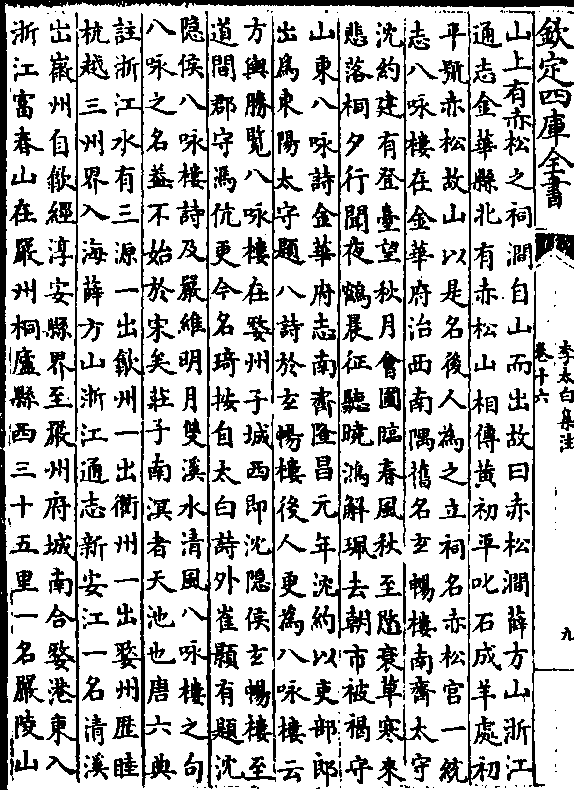 欽定四庫全書
李太白集注
卷十六
九
山上有赤松之祠澗自山而出故曰赤松澗薛方山浙江
通志金華縣北有赤松山相傳黄初平叱石成羊處初
平號赤松故山以是名後人為之立祠名赤松宫一統
志八咏樓在金華府治西南隅舊名玄暢樓南齊太守
沈約建有登臺望秋月會圃臨春風秋至愍衰草寒來
悲落桐夕行聞夜鶴晨征聽曉鴻解珮去朝市被褐守
山東八咏詩金華府志南齊隆昌元年沈約以吏部郎
出為東陽太守題八詩於玄暢樓後人更為八咏樓云
方輿勝覽八咏樓在婺州子城西即沈隐侯玄暢樓至
道間郡守馮伉更今名琦按自太白詩外崔顥有題沈
隐侯八咏樓詩及嚴維明月雙溪水清風八咏樓之句
八咏之名益不始於宋矣莊子南溟者天池也唐六典
註浙江水有三源一出歙州一出衢州一出婺州歴睦
杭越三州界入海薛方山浙江通志新安江一名清溪
出嶶州自歙經淳安縣界至嚴州府城南合婺港東入
浙江富春山在嚴州桐廬縣西三十五里一名嚴陵山